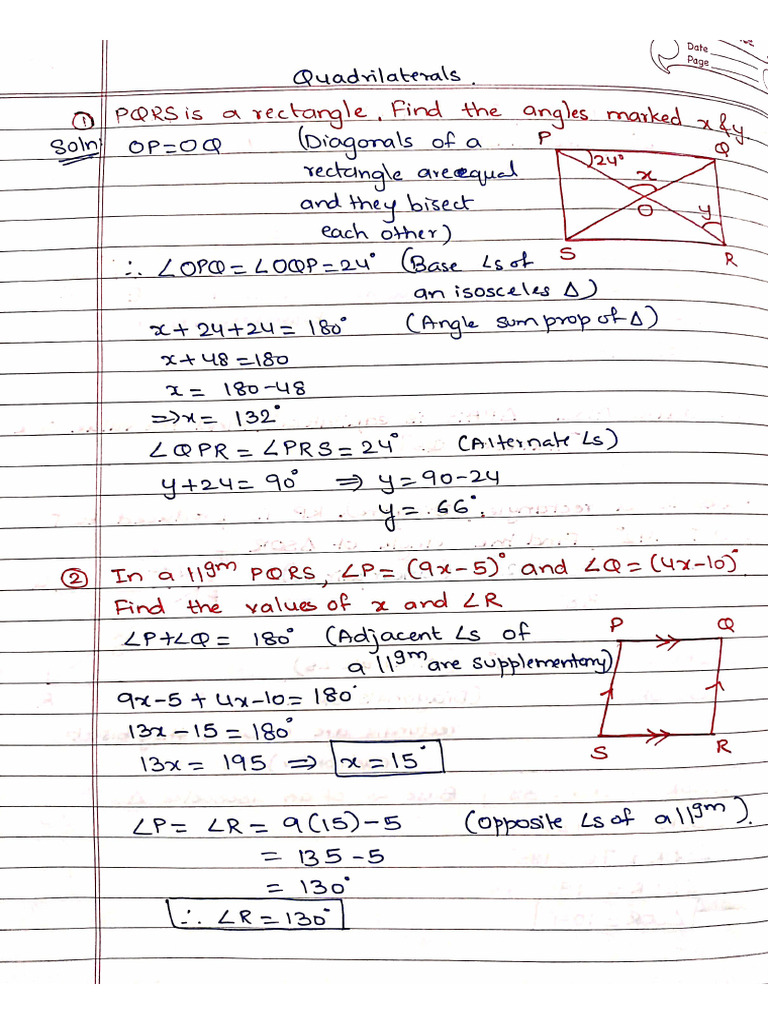 Date
Page
Quadrilaterals.
① PQRS is a rectangle. Find the angles marked x & y
Soln: OP=OQ (Diagonals of a
rectangle are equal
and they bisect
each other)
P Q
24°
x
O y
S R
∴ ∠OPQ = ∠OQP = 24° (Base ∠s of
an isosceles Δ)
x + 24 + 24 = 180° (Angle sum prop of Δ)
x + 48 = 180
x = 180-48
⇒ x = 132°
∠QPR = ∠PRS = 24° (Alternate ∠s)
y + 24 = 90° ⇒ y = 90-24
y = 66°.
② In a ||gm PQRS, ∠P = (9x-5)° and ∠Q = (4x-10)°
Find the values of x and ∠R
∠P+∠Q = 180° (Adjacent ∠s of
a ||gm are supplementary)
P Q
S R
9x-5 + 4x-10 = 180°
13x-15 = 180°
13x = 195 ⇒ x = 15°
∠P = ∠R = 9(15)-5 (Opposite ∠s of a ||gm).
= 135-5
= 130°
∴ ∠R = 130°